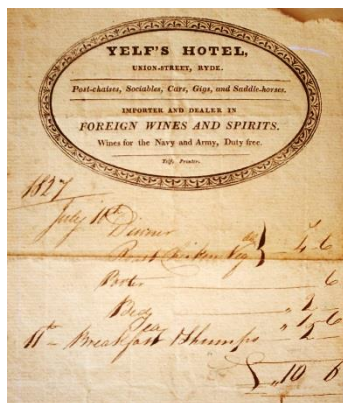 YELF'S HOTEL,
UNION-STREET, RYDE.
Post-chaises, Sociables, Cars, Gigs, and Saddle-horses.
IMPORTER AND DEALER IN
FOREIGN WINES AND SPIRITS.
Wines for the Navy and Army, Duty free.
Yelf, Printer.
1827
July 10th Dinner
Roast Chicken 4 6
Porter 6
Beds 2
Tea 1 6
11th - Breakfast & Shrimps 2
10 6